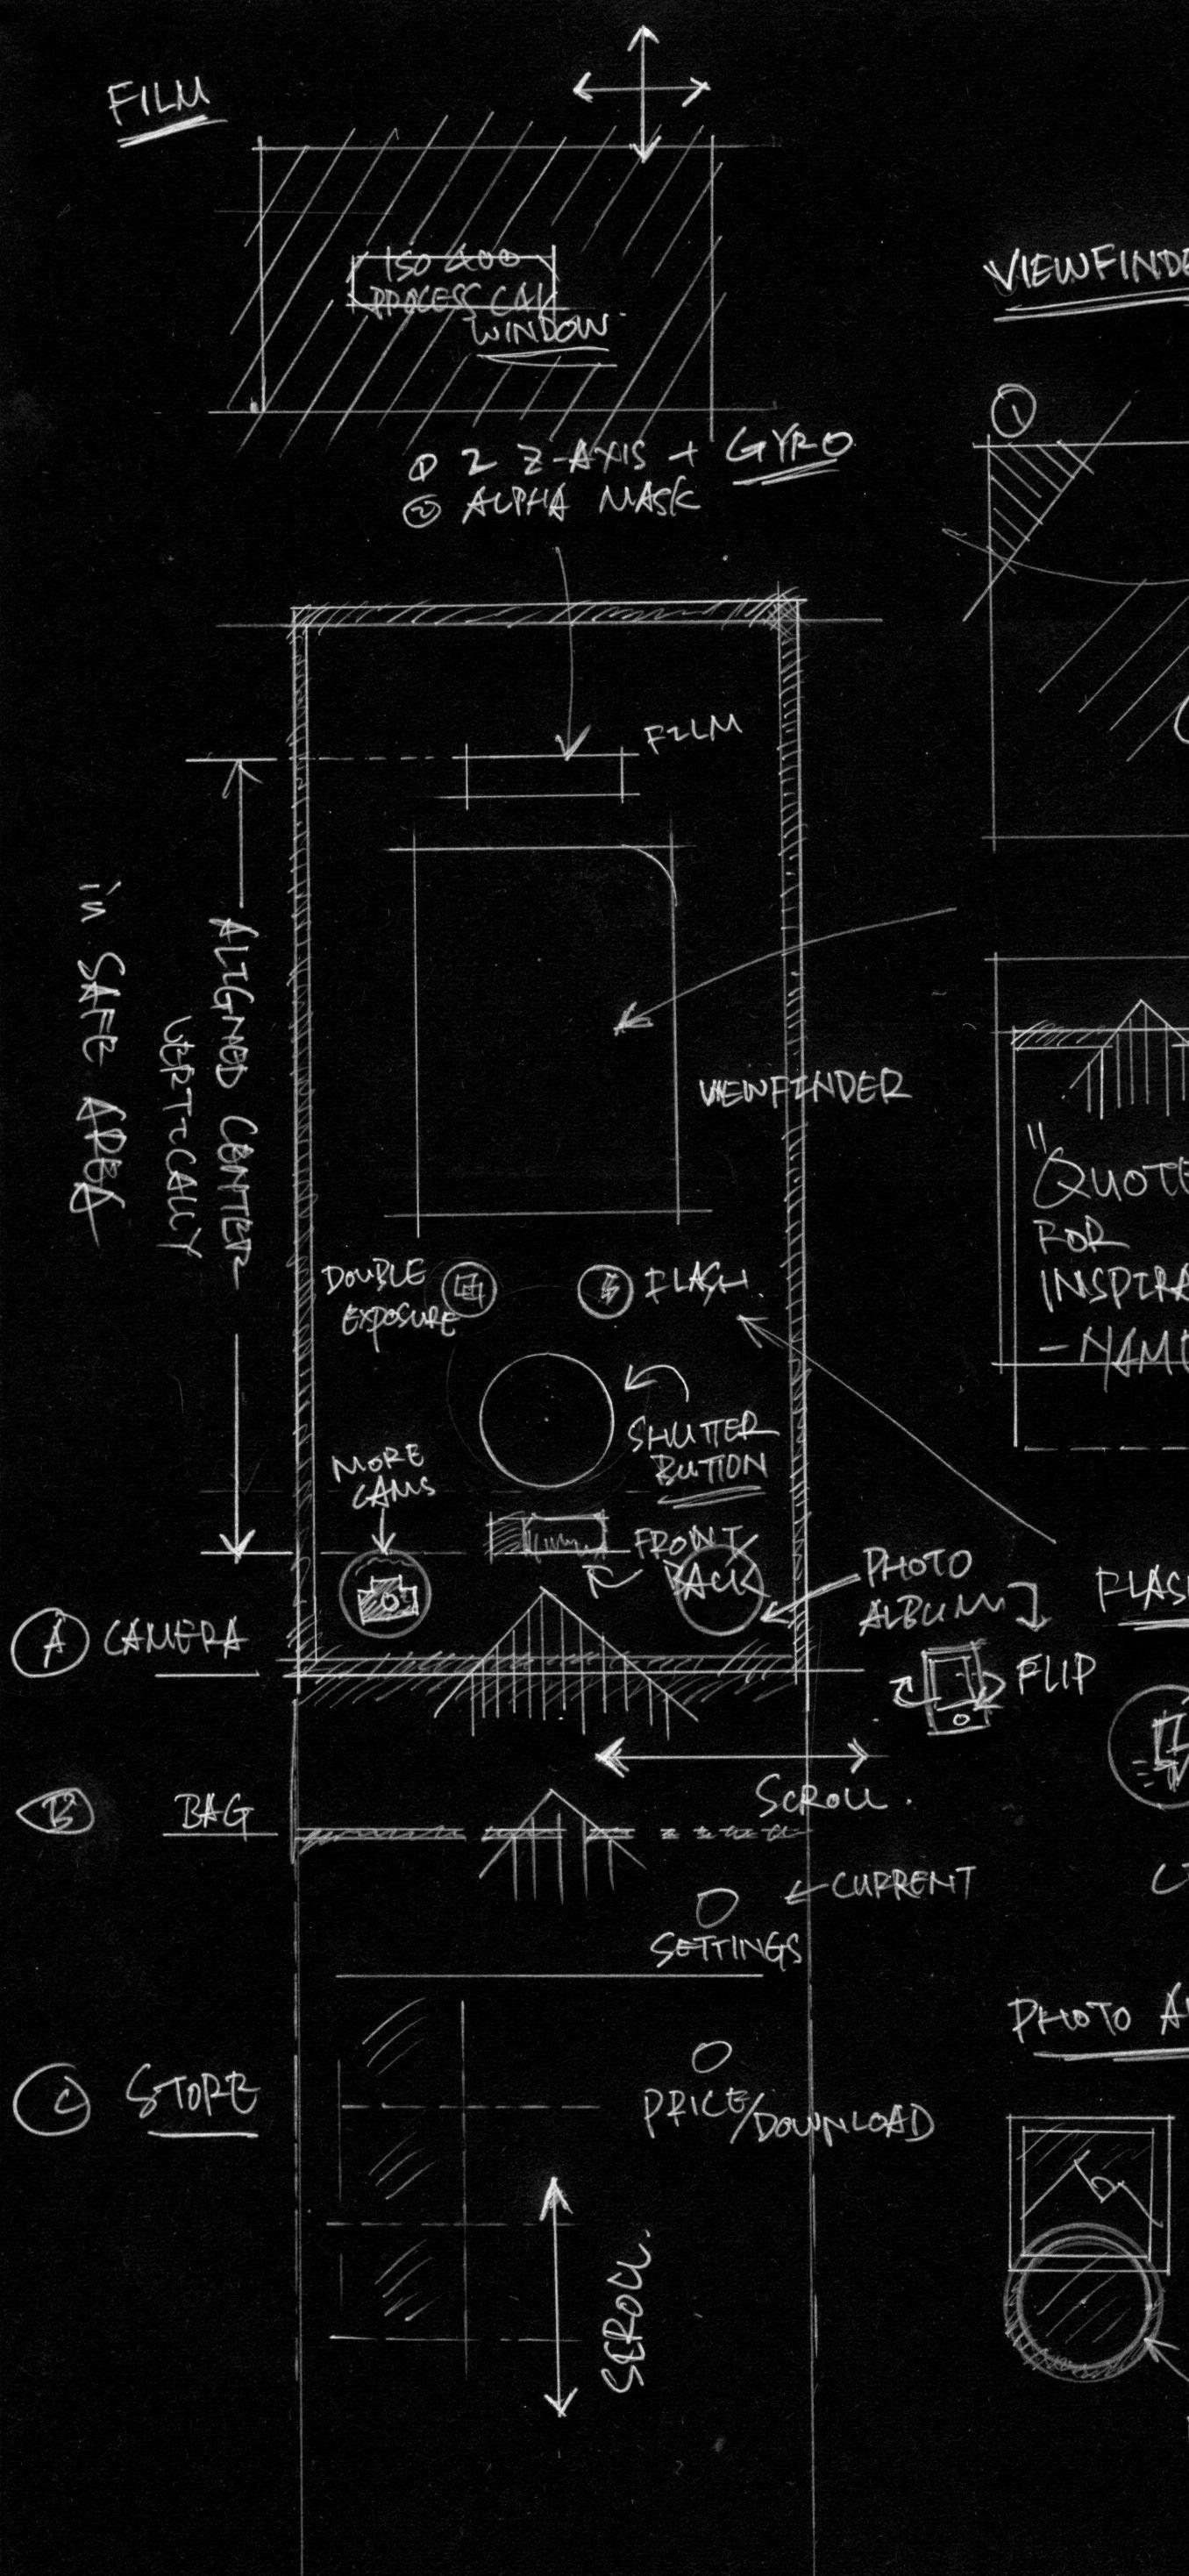 FILM
ISO 400
PROCESS C41
WINDOW
① 2 Z-AXIS + GYRO
② ALPHA MASK
FILM
ALIGNED CENTER
VERTICALLY
in SAFE AREA
VIEWFINDER
DOUBLE
EXPOSURE
FLASH
SHUTTER
BUTTON
MORE
CAMS
FRONT
BACK
PHOTO
ALBUM
FLIP
A CAMERA
SCROLL
B BAG
CURRENT
SETTINGS
C STORE
PRICE/DOWNLOAD
SCROLL
VIEWFINDE
①
"
QUOTE
FOR
INSPIRA
- NAM
FLAS
PHOTO A